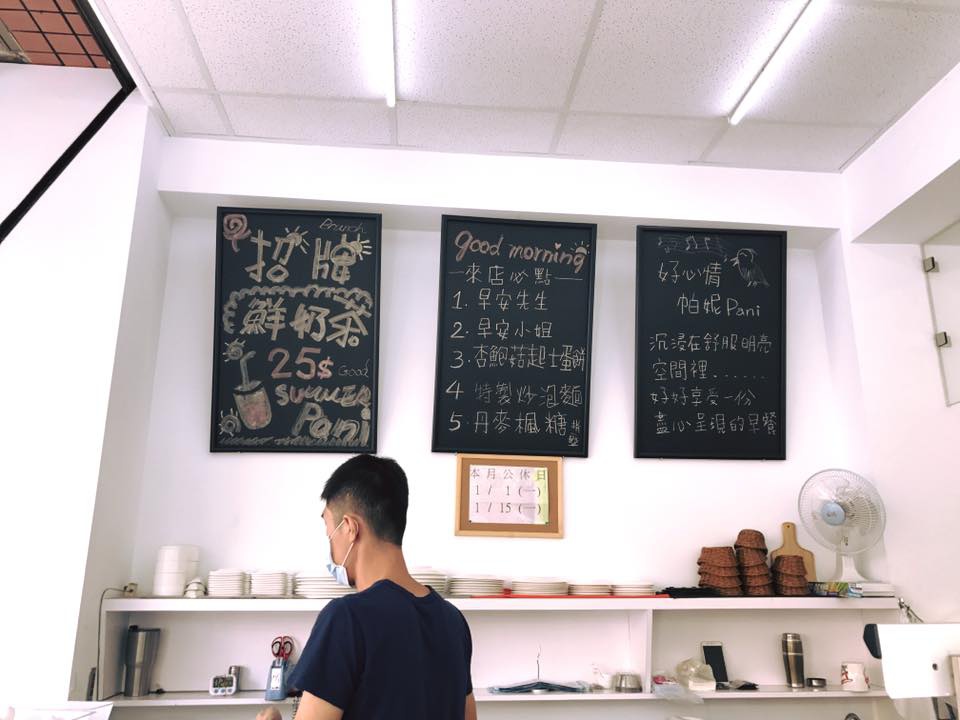 Brunch
招牌
鮮奶茶
25$
Good
SUMMER
Pani
good morning
一來店必點一
1. 早安先生
2. 早安小姐
3. 杏鮑菇起士蛋餅
4 特製炒泡麵
5. 丹麥楓糖
本月公休日
1 / 1 (一)
1 / 15 (一)
好心情
帕妮 Pani
沉浸在舒服明亮
空間裡......
好好享受一份
盡心呈現的早餐